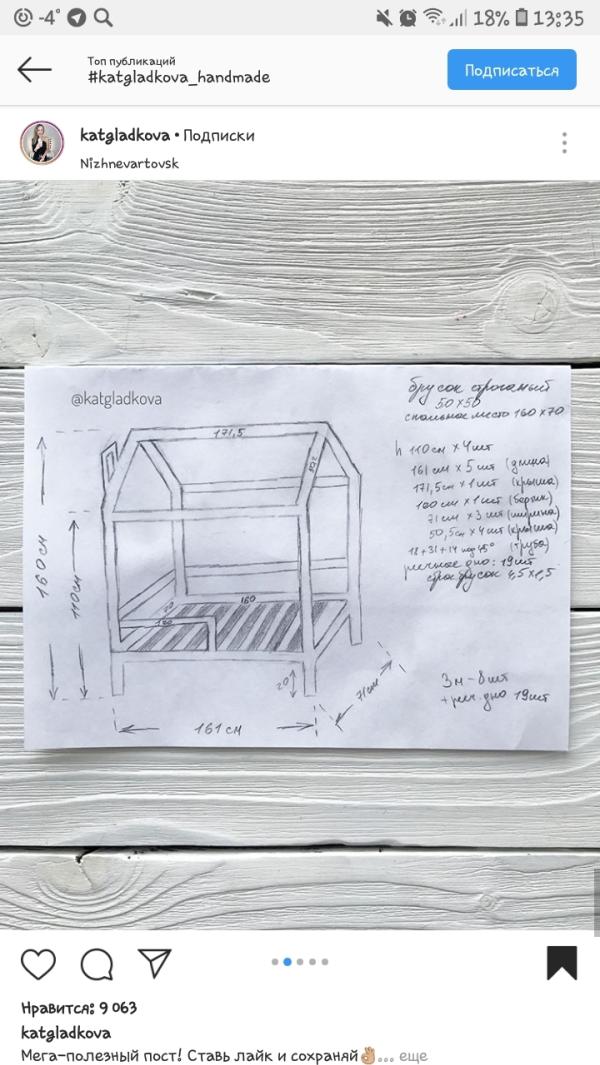 -4°
18% 13:35
Топ публикаций
#katgladkova_handmade
Подписаться
katgladkova • Подписки
Nizhnevartovsk
@katgladkova
брусок строганый
50x50
спальное место 160x70
h 110см x 4шт
161см x 5шт (длина)
171,5см x 1шт (крыша)
100см x 1шт (бортик)
71см x 3шт (ширина)
50,5см x 4шт (крыша)
18+31+14 под 45° (труба)
реечное дно: 19шт
брусок 4,5x1,5
3м - 8шт
+ реч. дно 19шт
171,5
160см
110см
160
70
20
71см
161см
Нравится: 9 063
katgladkova
Мега-полезный пост! Ставь лайк и сохраняй👌🏼... еще